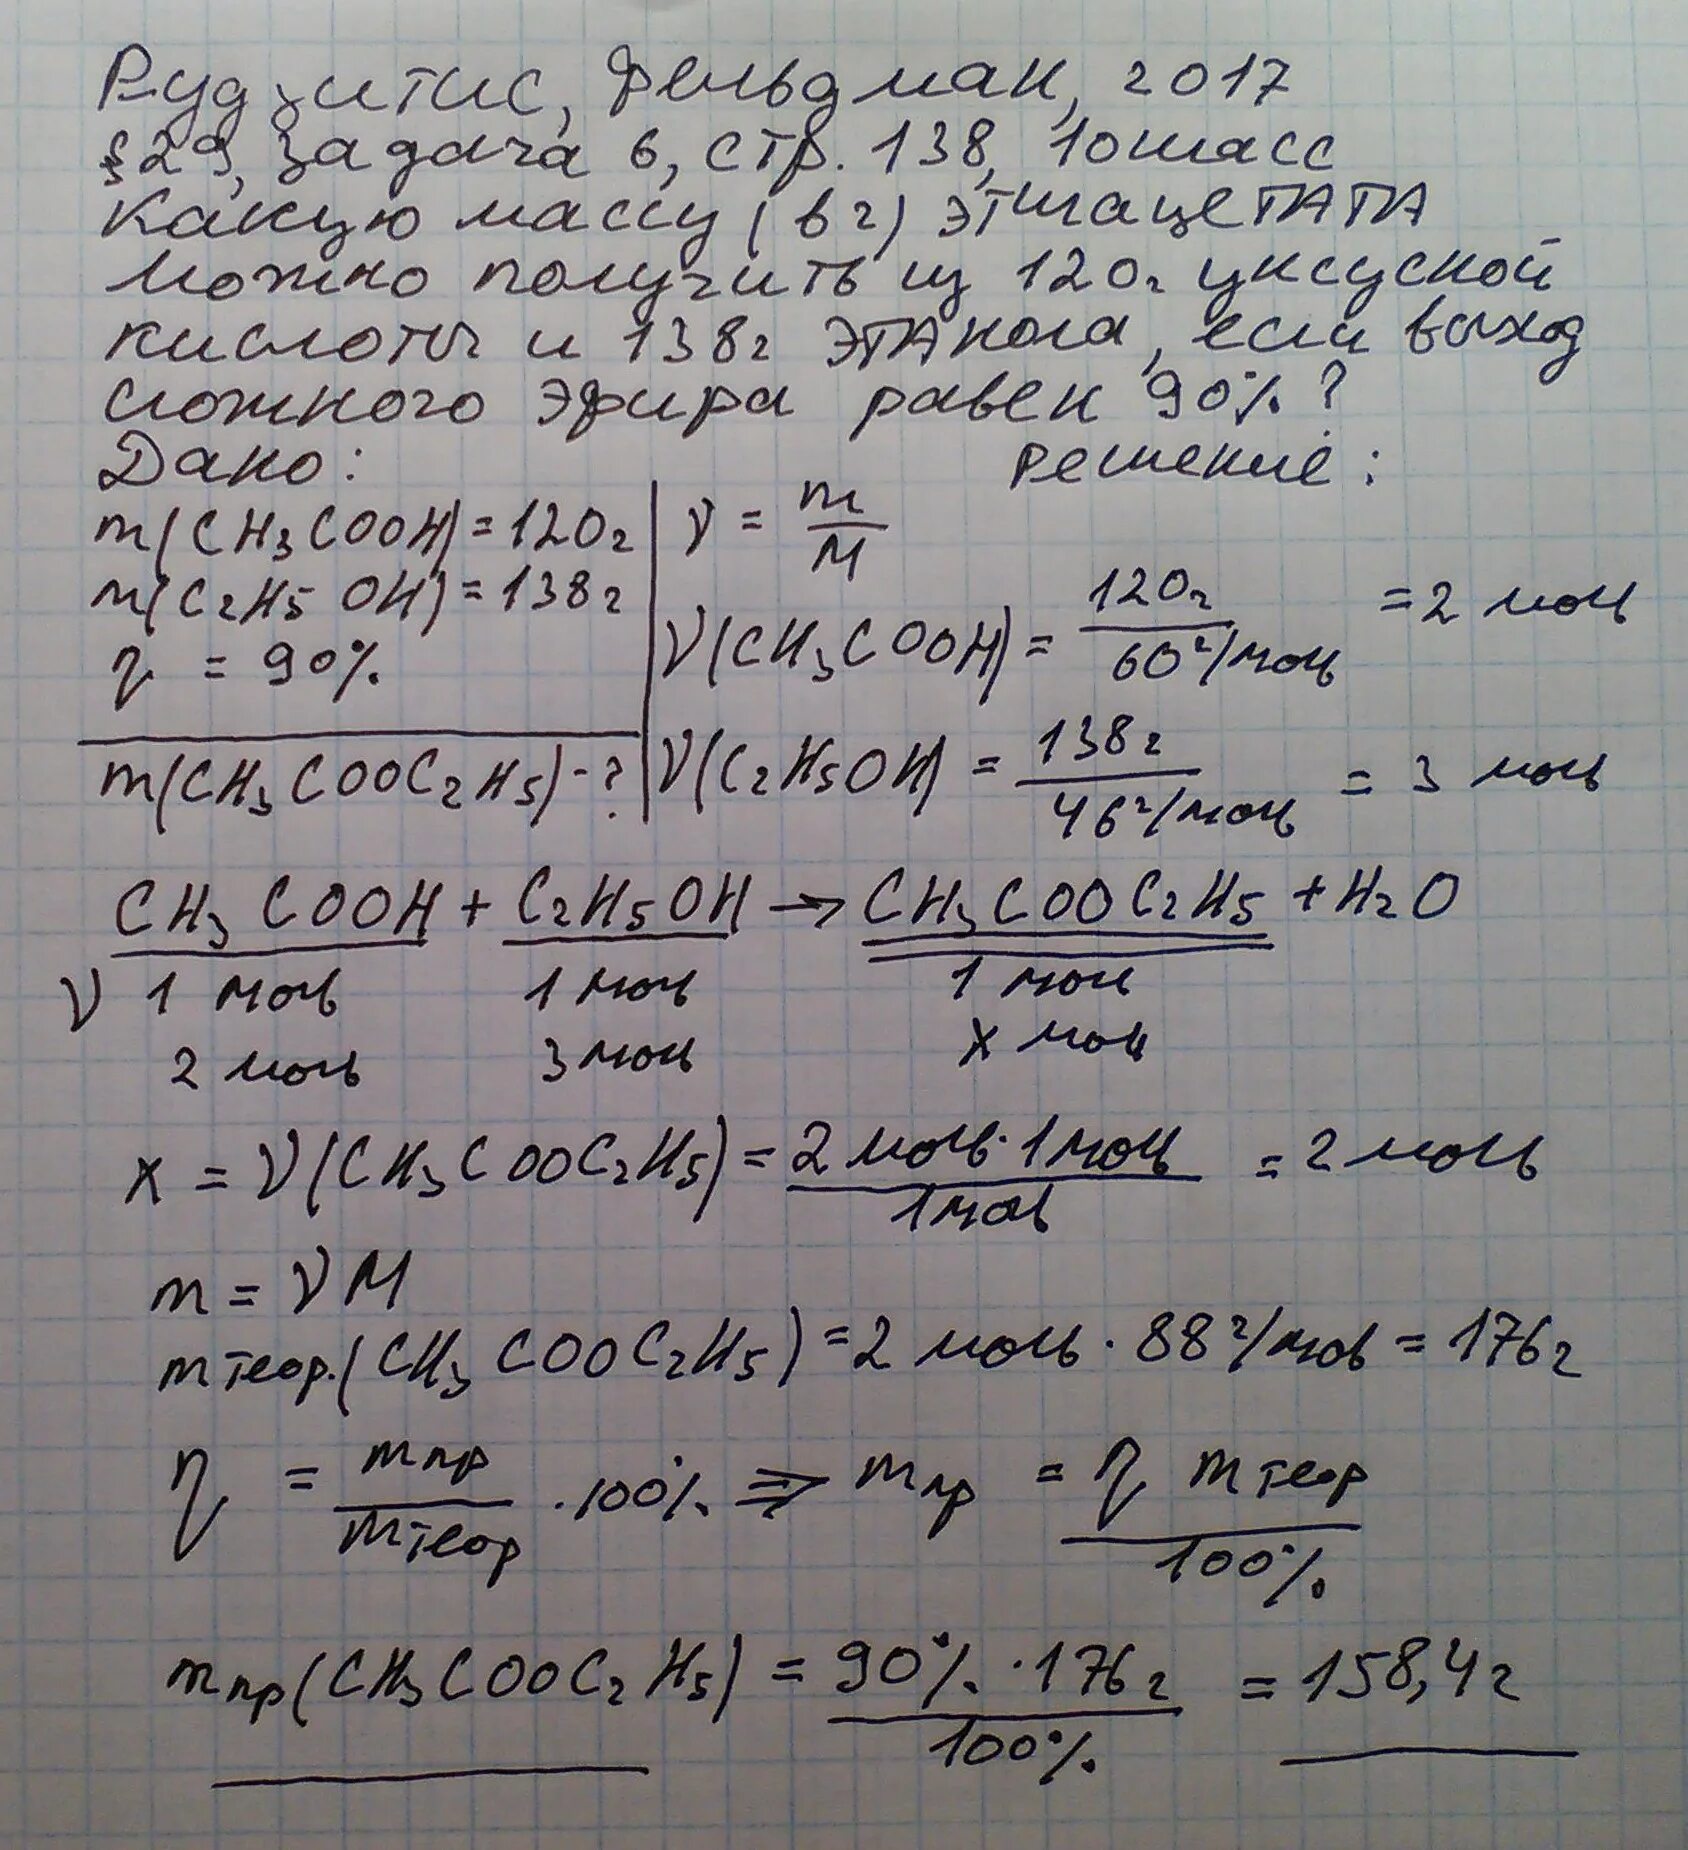 Рудзитис, Фельдман, 2017
§29, задача 6, стр. 138, 10 класс
Какую массу (в г) этилацетата
можно получить из 120г уксусной
кислоты и 138г этанола, если выход
сложного эфира равен 90%?
Дано: Решение:
m(CH3COOH)=120г ν = m/M
m(C2H5OH)=138г ν(CH3COOH) = 120г / 60г/моль = 2 моль
η = 90%
m(CH3COOC2H5)-? ν(C2H5OH) = 138г / 46г/моль = 3 моль
CH3COOH + C2H5OH → CH3COOC2H5 + H2O
ν 1 моль 1 моль 1 моль
2 моль 3 моль x моль
x = ν(CH3COOC2H5) = 2 моль · 1 моль / 1 моль = 2 моль
m = νM
m теор.(CH3COOC2H5) = 2 моль · 88 г/моль = 176г
η = m пр / m теор · 100% ⇒ m пр = η m теор / 100%
m пр(CH3COOC2H5) = 90% · 176г / 100% = 158,4г